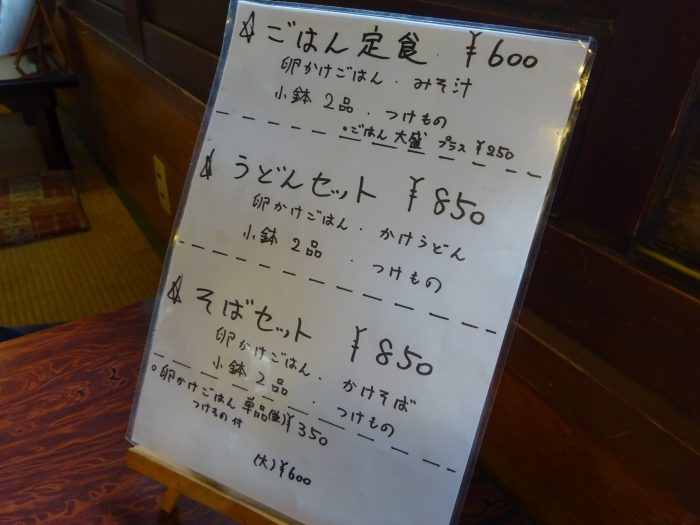 ☆ ごはん定食 ¥600
卵かけごはん・みそ汁
小鉢2品・つけもの
○ごはん大盛 プラス ¥250
☆ うどんセット ¥850
卵かけごはん・かけうどん
小鉢2品・つけもの
☆ そばセット ¥850
卵かけごはん・かけそば
小鉢2品・つけもの
○卵かけごはん 単品(並)¥350
つけもの付
(大)¥600